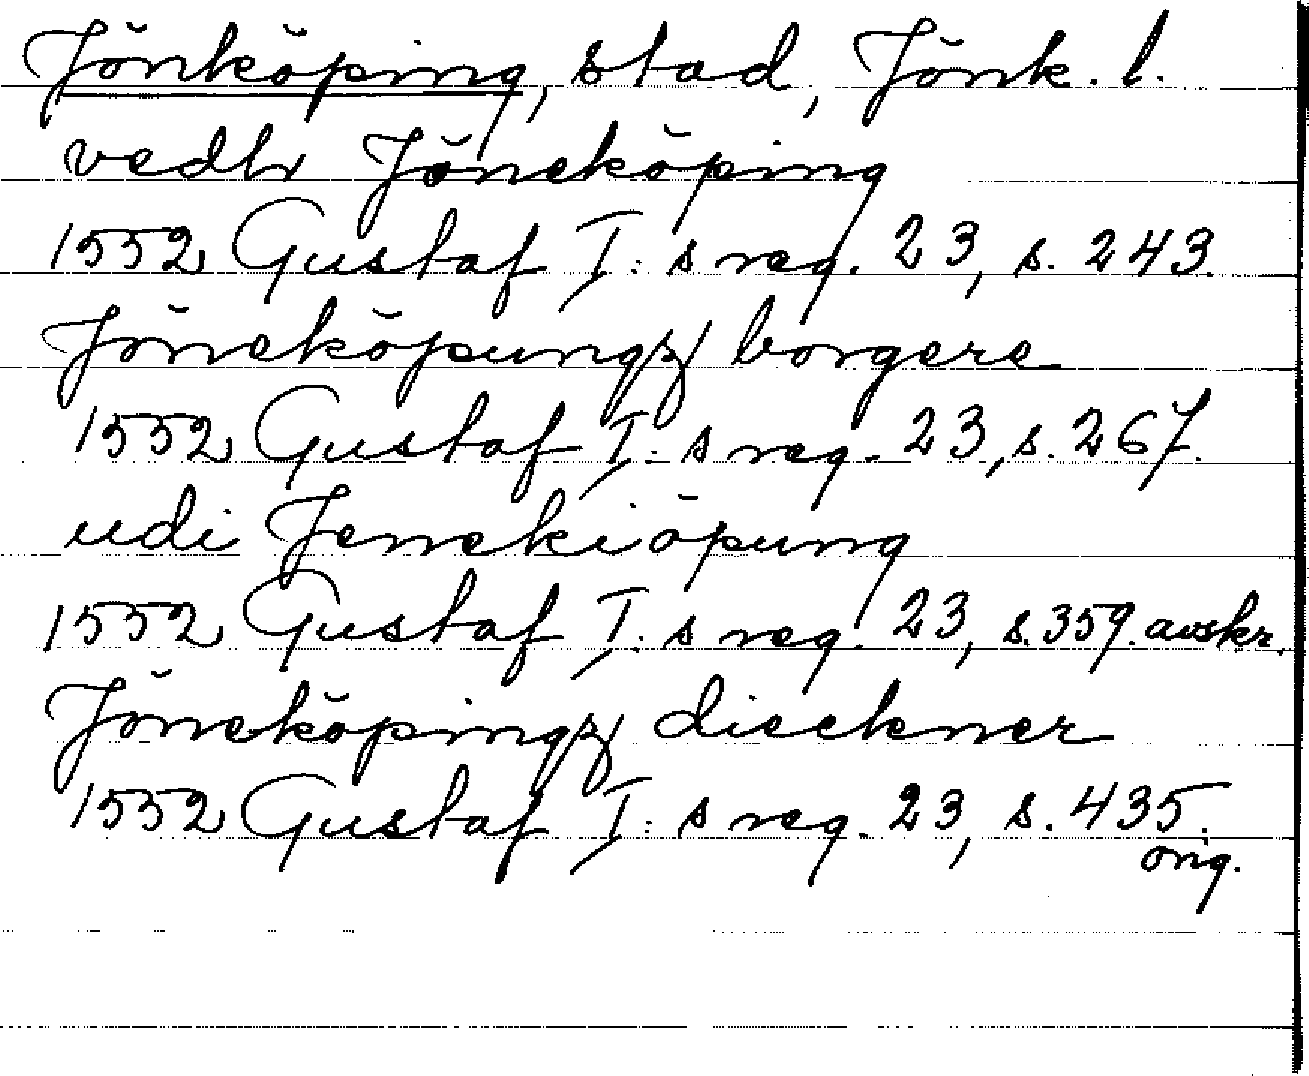 Jönköping, stad, Jönk. l.
vedh Jöneköping
1552 Gustaf I: s reg. 23, s. 243.
Jöneköpungz borgere
1552 Gustaf I: s reg. 23, s. 267.
udi Jenekiöpung
1552 Gustaf I: s reg. 23, s. 359. avskr.
Jöneköpingz dieckner
1552 Gustaf I: s reg. 23, s. 435.
orig.